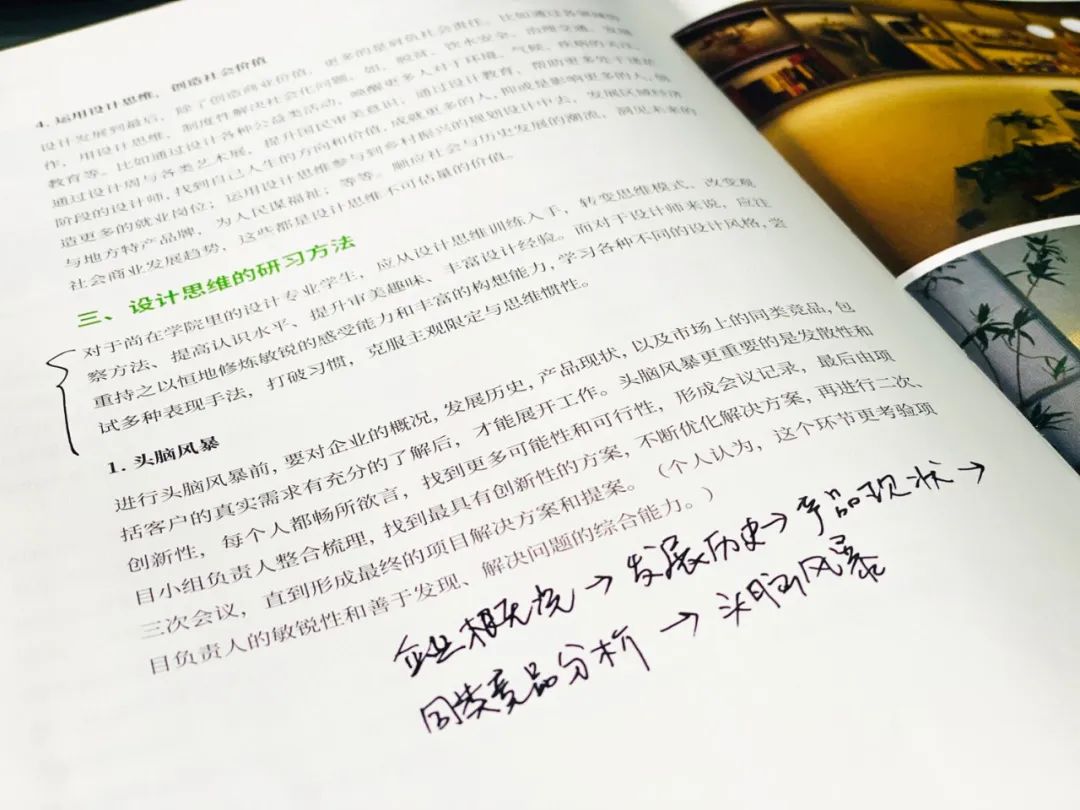 4. 运用设计思维,创造社会价值
设计发展到最后,除了创造商业价值,更多的是肩负社会责任。比如通过各领域协
作,用设计思维,制度性解决社会化问题,如,脱贫、饮水安全、治理交通、发展
教育等。比如通过设计各种公益类活动,唤醒更多人对于环境、气候、疾病的关注。
通过设计周与各类艺术展,提升国民审美意识,通过设计教育,帮助更多处于迷茫
阶段的设计师,找到自己人生的方向和价值,成就更多的人,即或是影响更多的人,创
造更多的就业岗位;运用设计思维参与到乡村振兴的规划设计中去,发展区域经济
与地方特产品牌,为人民谋福祉;等等。顺应社会与历史发展的潮流,洞见未来的
社会商业发展趋势,这些都是设计思维不可估量的价值。
三、设计思维的研习方法
对于尚在学院里的设计专业学生,应从设计思维训练入手,转变思维模式、改变观
察方法、提高认识水平、提升审美趣味、丰富设计经验。而对于设计师来说,应注
重持之以恒地修炼敏锐的感受能力和丰富的构想能力,学习各种不同的设计风格,尝
试多种表现手法,打破习惯,克服主观限定与思维惯性。
1. 头脑风暴
进行头脑风暴前,要对企业的概况,发展历史,产品现状,以及市场上的同类竞品,包
括客户的真实需求有充分的了解后,才能展开工作。头脑风暴更重要的是发散性和
创新性,每个人都畅所欲言,找到更多可能性和可行性,形成会议记录,最后由项
目小组负责人整合梳理,找到最具有创新性的方案,不断优化解决方案,再进行二次、
三次会议,直到形成最终的项目解决方案和提案。(个人认为,这个环节更考验项
目负责人的敏锐性和善于发现、解决问题的综合能力。)
企业概况→发展历史→产品现状→
同类竞品分析→头脑风暴